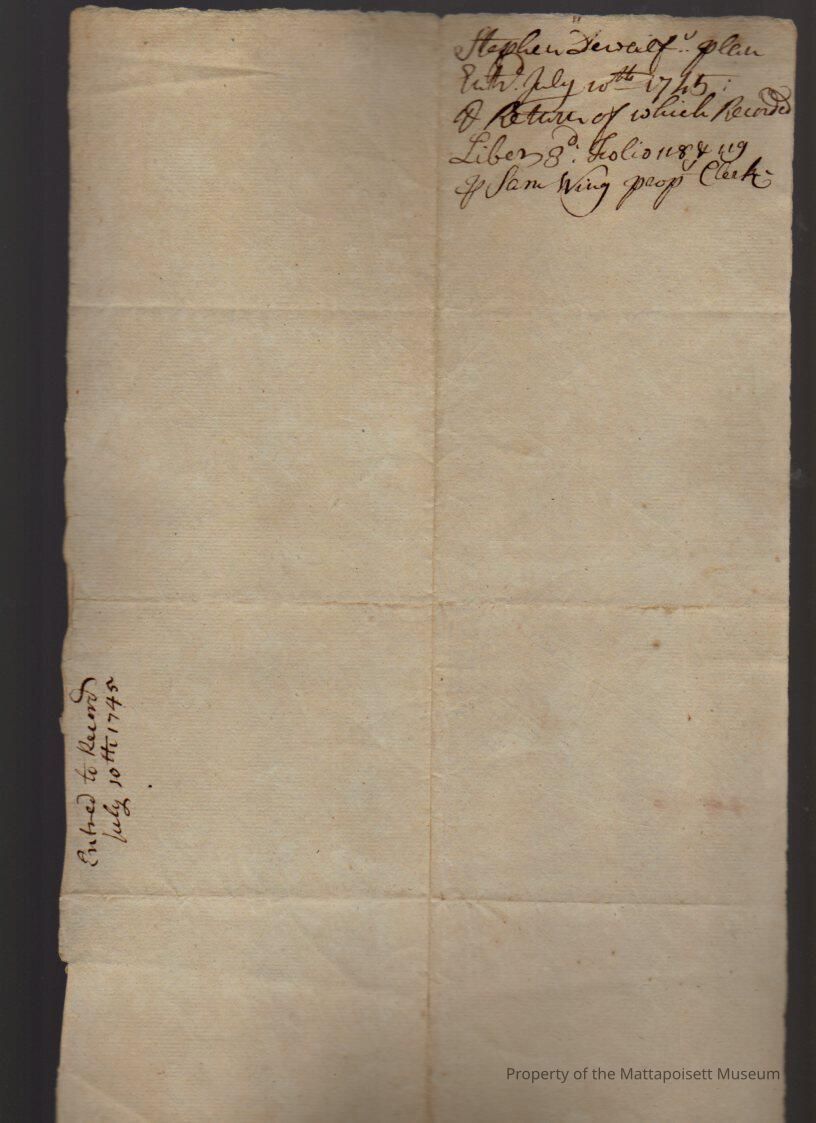 Stephen Dewolfs plan
Entrd. July 10th 1745:
& Return of which Recorded
Liber 3d. Folio 118 & 119
Sam Wing propy Clerk
Entred to Record
July 10th 1745
Property of the Mattapoisett Museum